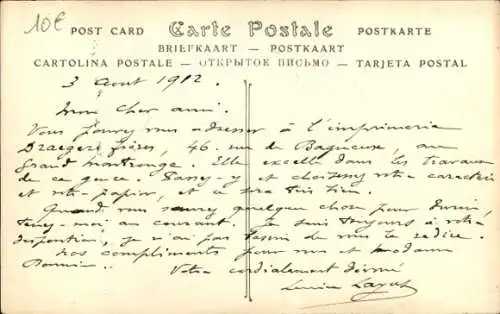 10€
POST CARD Carte Postale POSTKARTE
BRIEFKAART — POSTKAART
CARTOLINA POSTALE — ОТКРЫТОЕ ПИСЬМО — TARJETA POSTAL
3 Aout 1912.
Mon cher ami.
Vous pouvez vous adresser à l'imprimerie
Draeger frères, 46, rue de Bagneux, au
grand montrouge. Elle excelle dans les travaux
de ce genre. Passez-y et choisissez votre caractère
et votre papier, et ce sera très bien.
Quand vous saurez quelque chose pour
tenez-moi au courant. Je suis toujours à votre
disposition, je n'ai pas besoin de vous le redire.
Nos compliments pour vous et madame
Votre cordialement dévoué